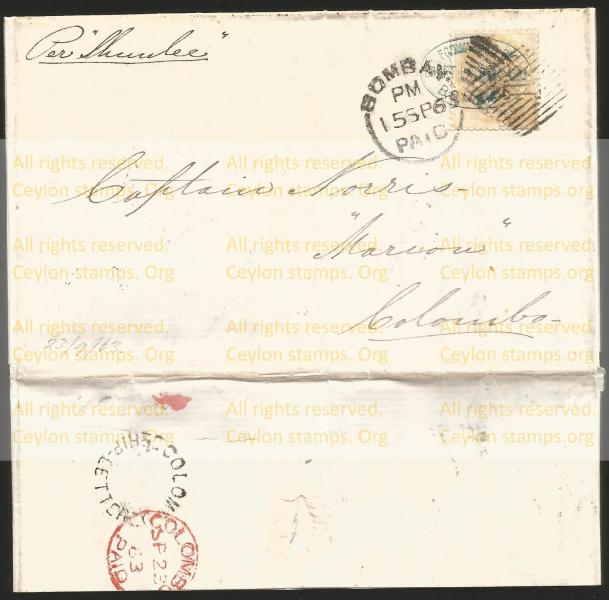 Per "Shunlee"
BOMBAY
PM
15 SP 63
PAID
Captain Norris-
"Marion"
Colombo-
All rights reserved. All rights reserved. All rights reserved.
Ceylon stamps. Org Ceylon stamps. Org Ceylon stamps. Org
All rights reserved. All rights reserved. All rights reserved.
Ceylon stamps. Org Ceylon stamps. Org Ceylon stamps. Org
All rights reserved. All rights reserved. All rights reserved.
Ceylon stamps. Org Ceylon stamps. Org Ceylon stamps. Org
All rights reserved. All rights reserved. All rights reserved.
Ceylon stamps. Org Ceylon stamps. Org Ceylon stamps. Org
COLOM
SHIP-LETTER
COLOMBO
SP 23
63
PAID